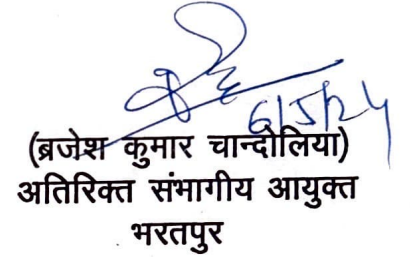 6/5/24
(ब्रजेश कुमार चान्दोलिया)
अतिरिक्त संभागीय आयुक्त
भरतपुर